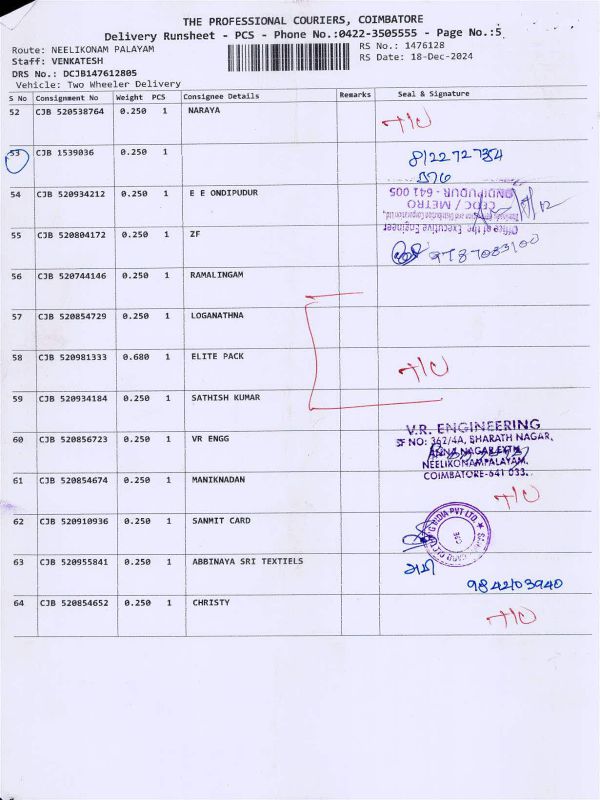 THE PROFESSIONAL COURIERS, COIMBATORE
Delivery Runsheet - PCS - Phone No.:0422-3505555 - Page No.:5
Route: NEELIKONAM PALAYAM
RS No.: 1476128
Staff: VENKATESH
RS Date: 18-Dec-2024
DRS No.: DCJB147612805
Vehicle: Two Wheeler Delivery
S No Consignment No Weight PCS Consignee Details Remarks Seal & Signature
52 CJB 520538764 0.250 1 NARAYA
53 CJB 1539036 0.250 1
8122727354
54 CJB 520934212 0.250 1 E E ONDIPUDUR
ONDIPUDUR - 641 005
CEDC / METRO
Office of the Executive Engineer
55 CJB 520804172 0.250 1 ZF
9787083100
56 CJB 520744146 0.250 1 RAMALINGAM
57 CJB 520854729 0.250 1 LOGANATHNA
58 CJB 520981333 0.680 1 ELITE PACK
59 CJB 520934184 0.250 1 SATHISH KUMAR
60 CJB 520856723 0.250 1 VR ENGG
V.R. ENGINEERING
SF NO: 362/4A, BHARATH NAGAR,
ANNA NAGAR EXTN
NEELIKONAMPALAYAM,
COIMBATORE-641 033.
61 CJB 520854674 0.250 1 MANIKNADAN
62 CJB 520910936 0.250 1 SANMIT CARD
INDIA PVT LTD
63 CJB 520955841 0.250 1 ABBINAYA SRI TEXTIELS
9842103940
64 CJB 520854652 0.250 1 CHRISTY